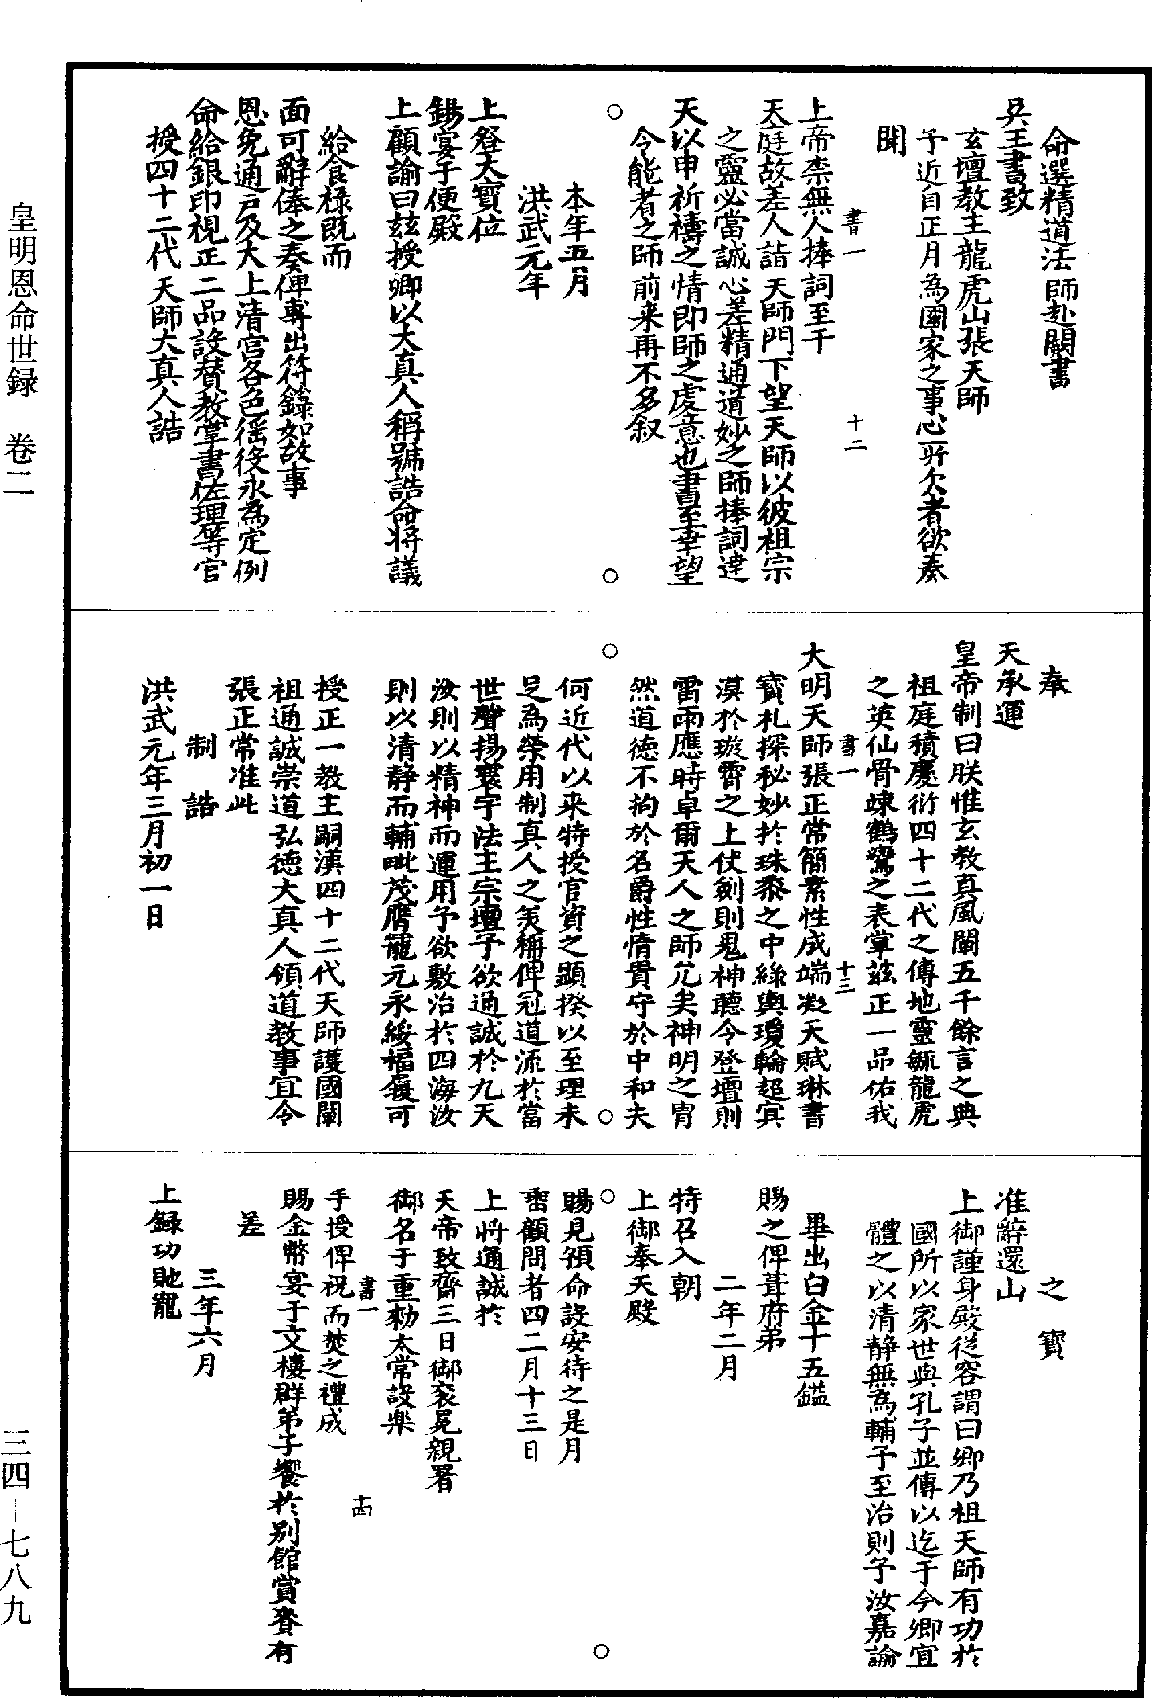 命選精道法師赴闕書
吳王書致
玄壇教主龍虎山張天師
予近自正月為國家之事心所欠者欲奏
聞
書一 十二
上帝柰無人捧詞至于
天庭故差人詣天師門下望天師以彼祖宗
之靈必當誠心差精通道妙之師捧詞達
天以申祈禱之情即師之處意也書至幸望
令能者之師前来再不多叙
本年五月
洪武元年
上登大寶位
錫宴于便殿
上顧諭曰玆授卿以大真人稱號誥命将議
給食禄既而
面可辭俸之奏俾専出符籙如故事
恩免通戸及大上清宮各色徭役永為定例
命給銀印視正二品設賛教掌書佐理等官
授四十二代天師大真人誥
奉
天承運
皇帝制曰朕惟玄教真風闡五千餘言之典
祖庭積慶衍四十二代之傳地靈毓龍虎
之英仙骨竦鶴鸞之表掌玆正一品佑我
書一 十三
大明天師張正常簡素性成端凝天賦琳書
寶札探秘妙於珠黍之中綠輿瓊輪超㝠
漠於璇霄之上仗劍則鬼神聽令登壇則
雷雨應時卓爾天人之師允矣神明之胄
然道德不拘於名爵性情貴守於中和夫
何近代以来特授官資之顯揆以至理未
足為榮用制真人之美稱俾冠道流於當
世聲揚寰宇法主宗壇予欲通誠於九天
汝則以精神而運用予欲敷治於四海汝
則以清静而輔毗茂膺寵元永綏福履可
授正一教主嗣漢四十二代天師護國闡
祖通誠崇道弘德大真人領道教事宜令
張正常准此
制誥
洪武元年三月初一日
之寶
准辭還山
上御謹身殿從容謂曰卿乃祖天師有功於
國所以家世與孔子並傳以迄于今卿宜
體之以清静無為輔予至治則予汝嘉諭
畢出白金十五鎰
賜之俾葺府弟
二年二月
特召入朝
上御奉天殿
賜見預命設安待之是月
畱顧問者四二月十三日
上將通誠於
天帝致齋三日御衮冕親署
御名于重勅太常設樂
書一 十四
手授俾祝而焚之禮成
賜金幣宴于文樓群弟子饗於别館賞賚有
差
三年六月
上録功貤寵
皇明恩命世録 卷二
三四—七八九